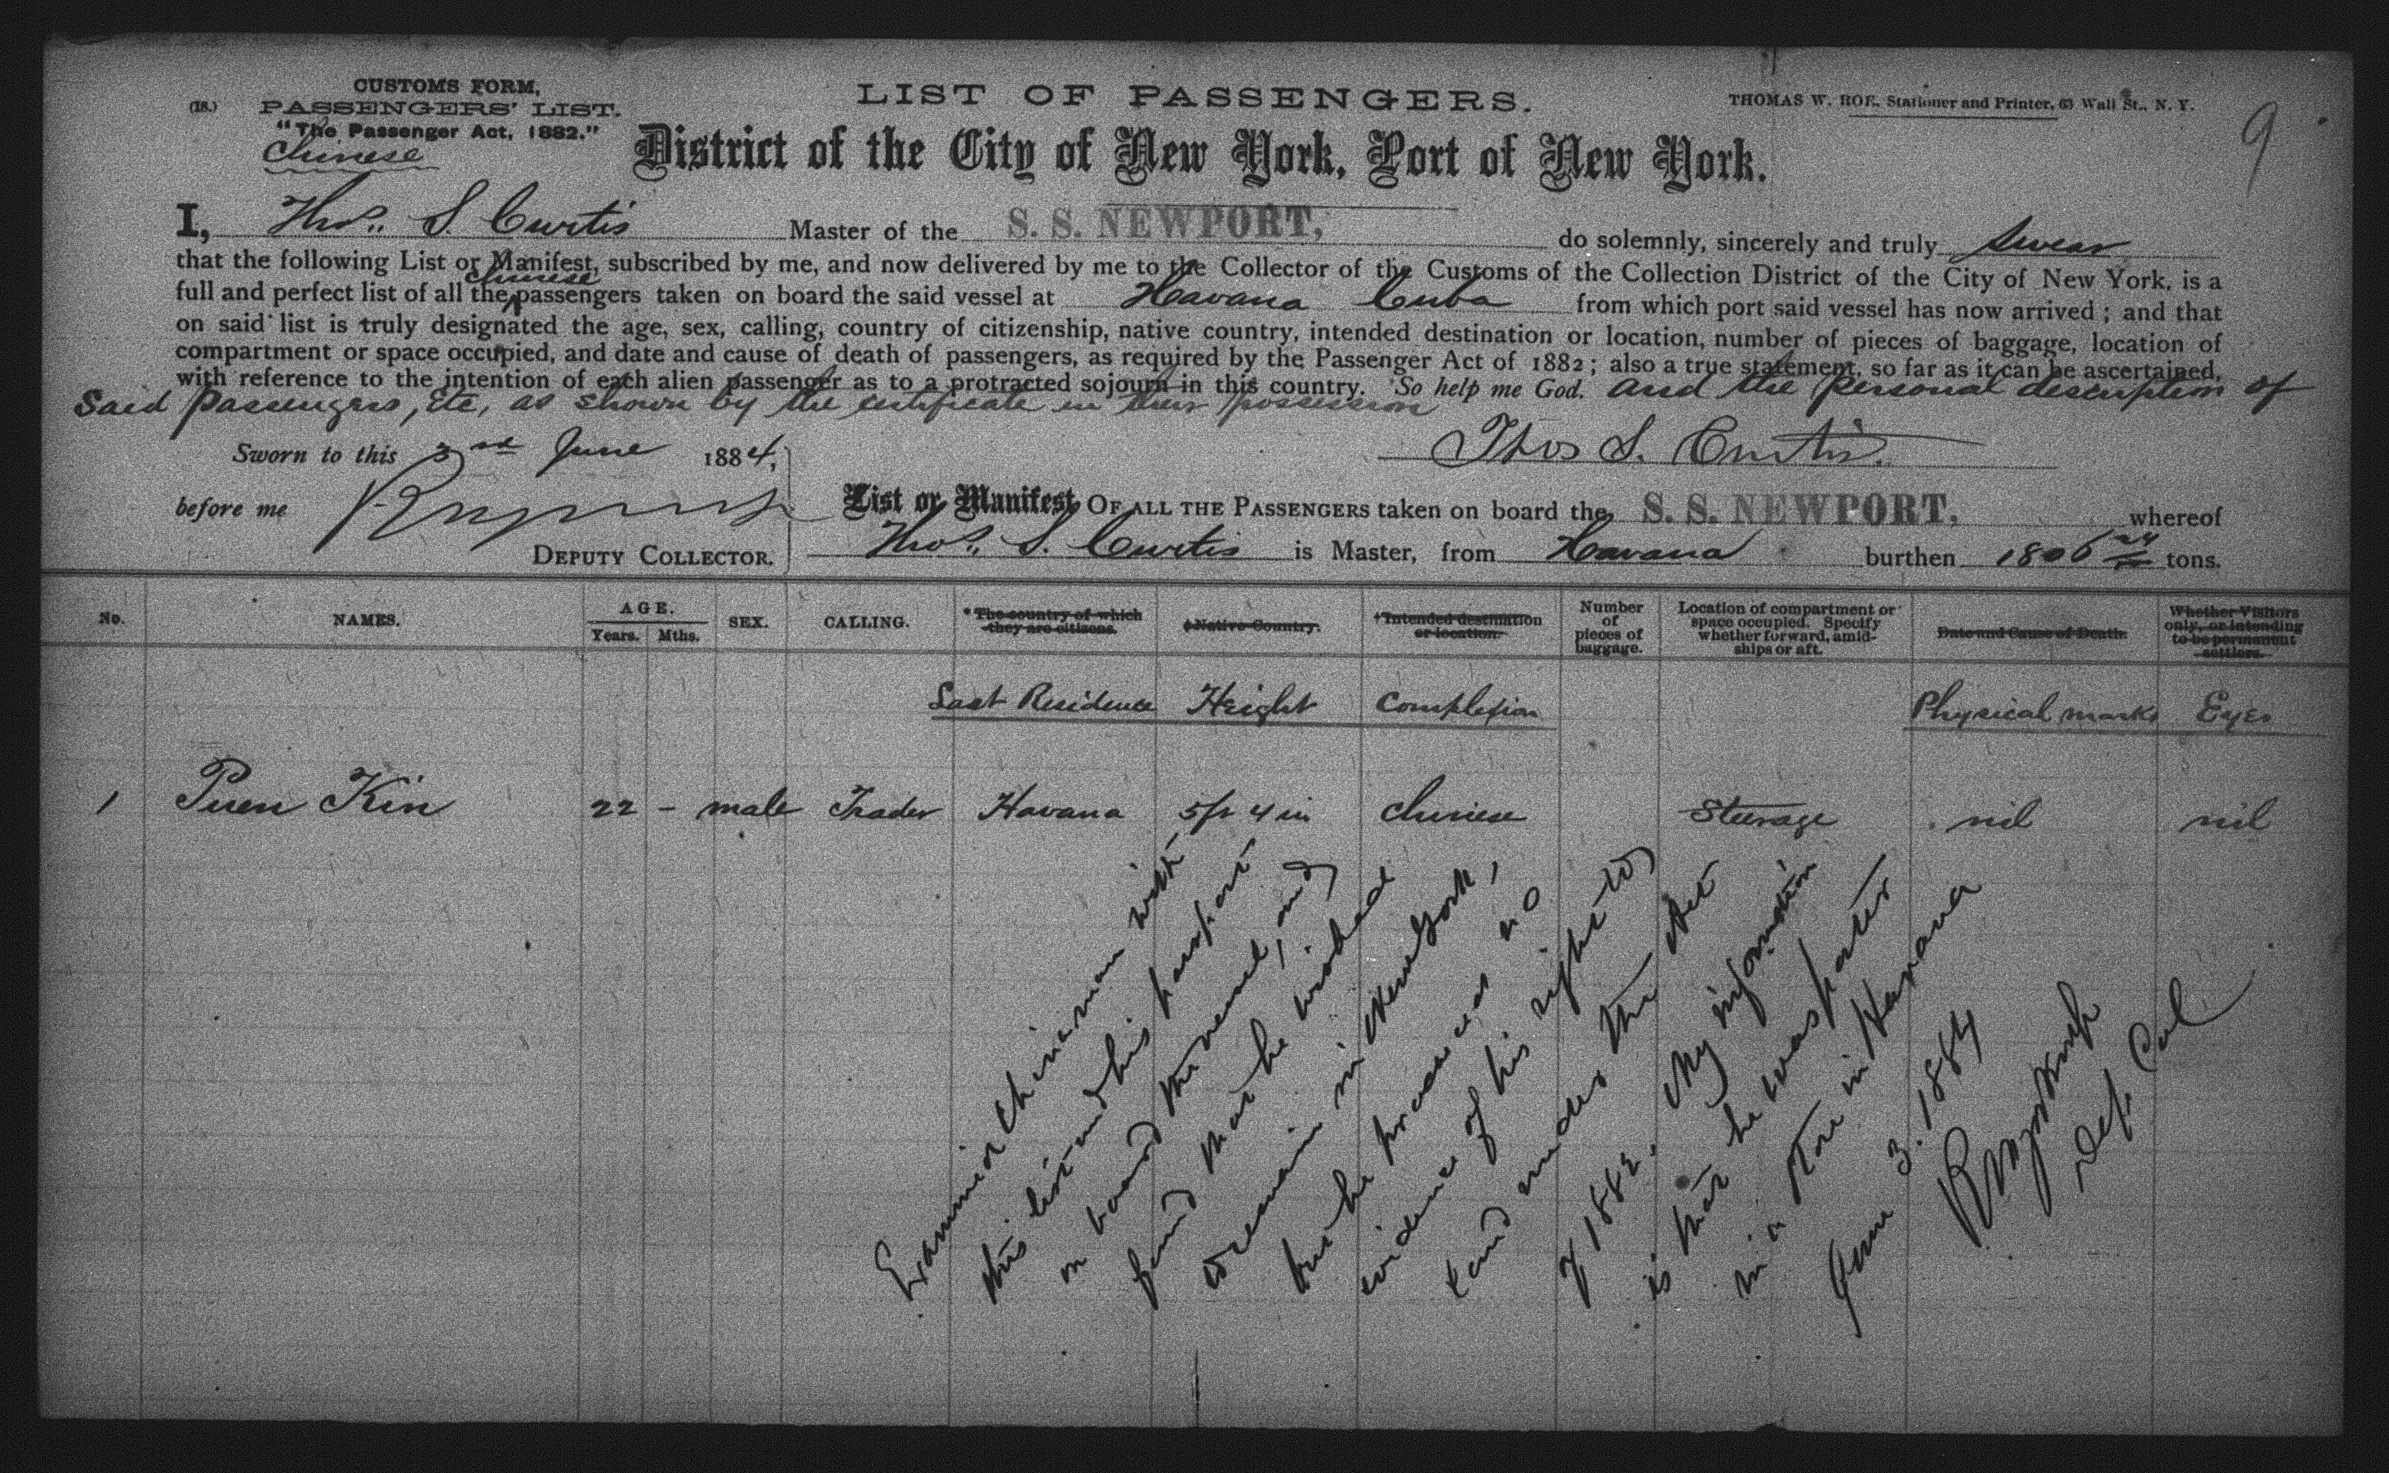 CUSTOMS FORM,
(18.) PASSENGERS' LIST.
"The Passenger Act, 1882."
Chinese
LIST OF PASSENGERS.
THOMAS W. ROE, Stationer and Printer, 63 Wall St., N. Y.
9
District of the City of New York, Port of New York.
I, Thos. S. Curtis Master of the S. S. NEWPORT, do solemnly, sincerely and truly swear
that the following List or Manifest, subscribed by me, and now delivered by me to the Collector of the Customs of the Collection District of the City of New York, is a
full and perfect list of all the Chinese passengers taken on board the said vessel at Havana Cuba from which port said vessel has now arrived; and that
on said list is truly designated the age, sex, calling, country of citizenship, native country, intended destination or location, number of pieces of baggage, location of
compartment or space occupied, and date and cause of death of passengers, as required by the Passenger Act of 1882; also a true statement, so far as it can be ascertained,
with reference to the intention of each alien passenger as to a protracted sojourn in this country. So help me God. and the personal description of
said passengers, etc, as shown by the certificate in their possession
Sworn to this 3rd June 1884,
Thos S. Curtis.
before me
DEPUTY COLLECTOR.
List or Manifest OF ALL THE PASSENGERS taken on board the S. S. NEWPORT, whereof
Thos. S. Curtis is Master, from Havana burthen 1806 tons.
No. NAMES. AGE. Years. Mths. SEX. CALLING. *The country of which they are citizens. †Native Country. †Intended destination or location. Number of pieces of baggage. Location of compartment or space occupied. Specify whether forward, amidships or aft. Date and Cause of Death. Whether Visitors only, or intending to be permanent settlers.
Last Residence Height Complexion Physical marks Eyes
1 Puen Kin 22 - male Trader Havana 5ft 4in Chinese Steerage nil nil
Examined Chinaman with
this list and his passport
on board the vessel, and
find that he wished
to remain in New York,
but he produces no
evidence of his right to
land under the Act
of 1882. My information
is that he was porter
in a store in Havana
June 3. 1884
Dep. Col